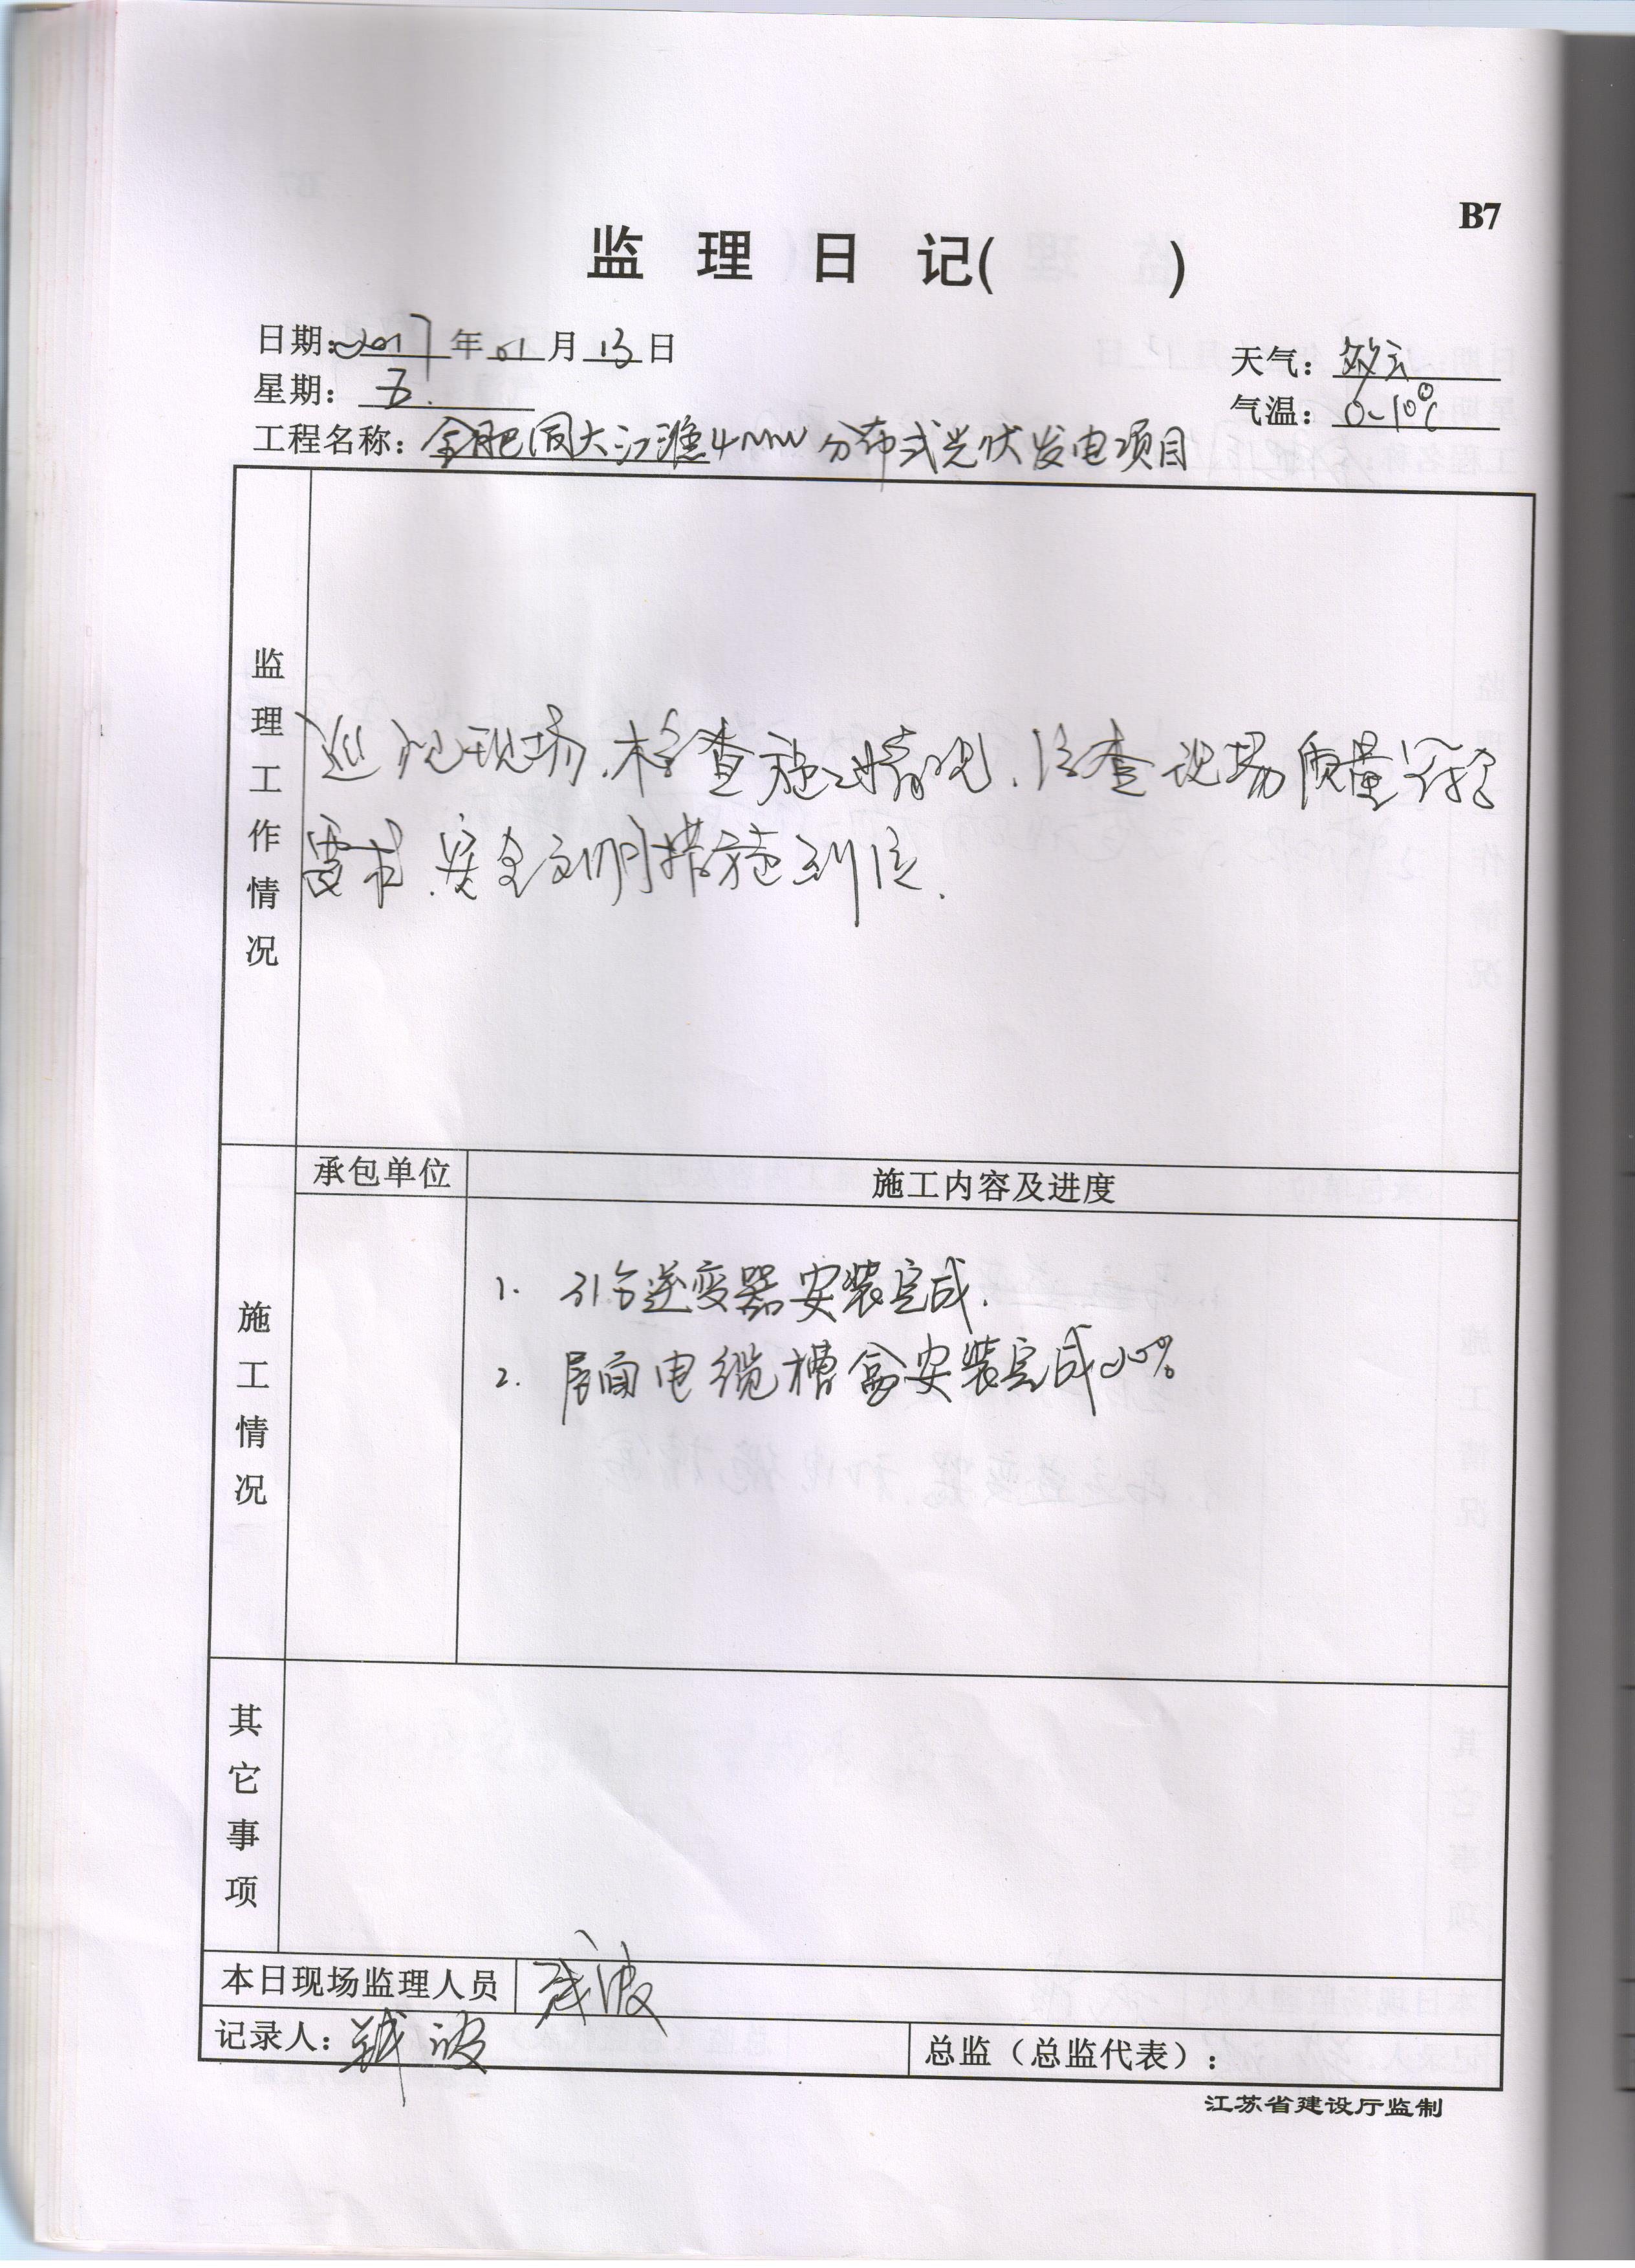 B7
监 理 日 记( )
日期: 2017 年 01 月 13 日
天气: 多云
星期: 五.
气温: 0~10℃
工程名称: 合肥同大江淮4MW分布式光伏发电项目
监理工作情况
巡视现场.检查施工情况.检查现场质量符合
要求.安全文明措施到位.
承包单位
施工内容及进度
施工情况
1. 31台逆变器安装完成.
2. 屋面电缆槽盒安装完成20%
其它事项
本日现场监理人员
记录人:
总监（总监代表）:
江苏省建设厅监制